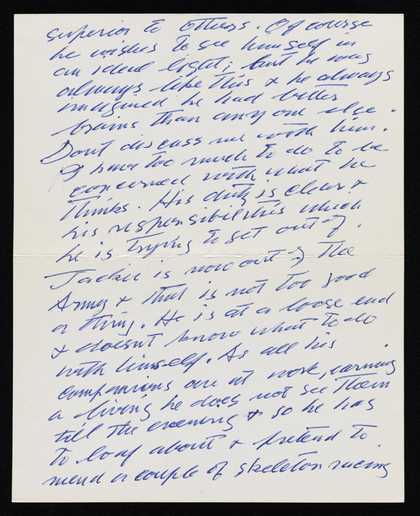 superior to others. Of course
he wishes to see himself in
an ideal light; but he was
always like this & he always
imagined he had better
brains than any one else.
Don't discuss me with him.
I have too much to do to be
concerned with what he
thinks. His duty is clear &
his responsibilities which
he is trying to get out of.
Jackie is now out of the
Army & that is not too good
a thing. He is at a loose end
& doesn't know what to do
with himself. As all his
companions are at work, earning
a living he does not see them
till the evening & so he has
to loaf about & pretend to
mend a couple of skeleton racing